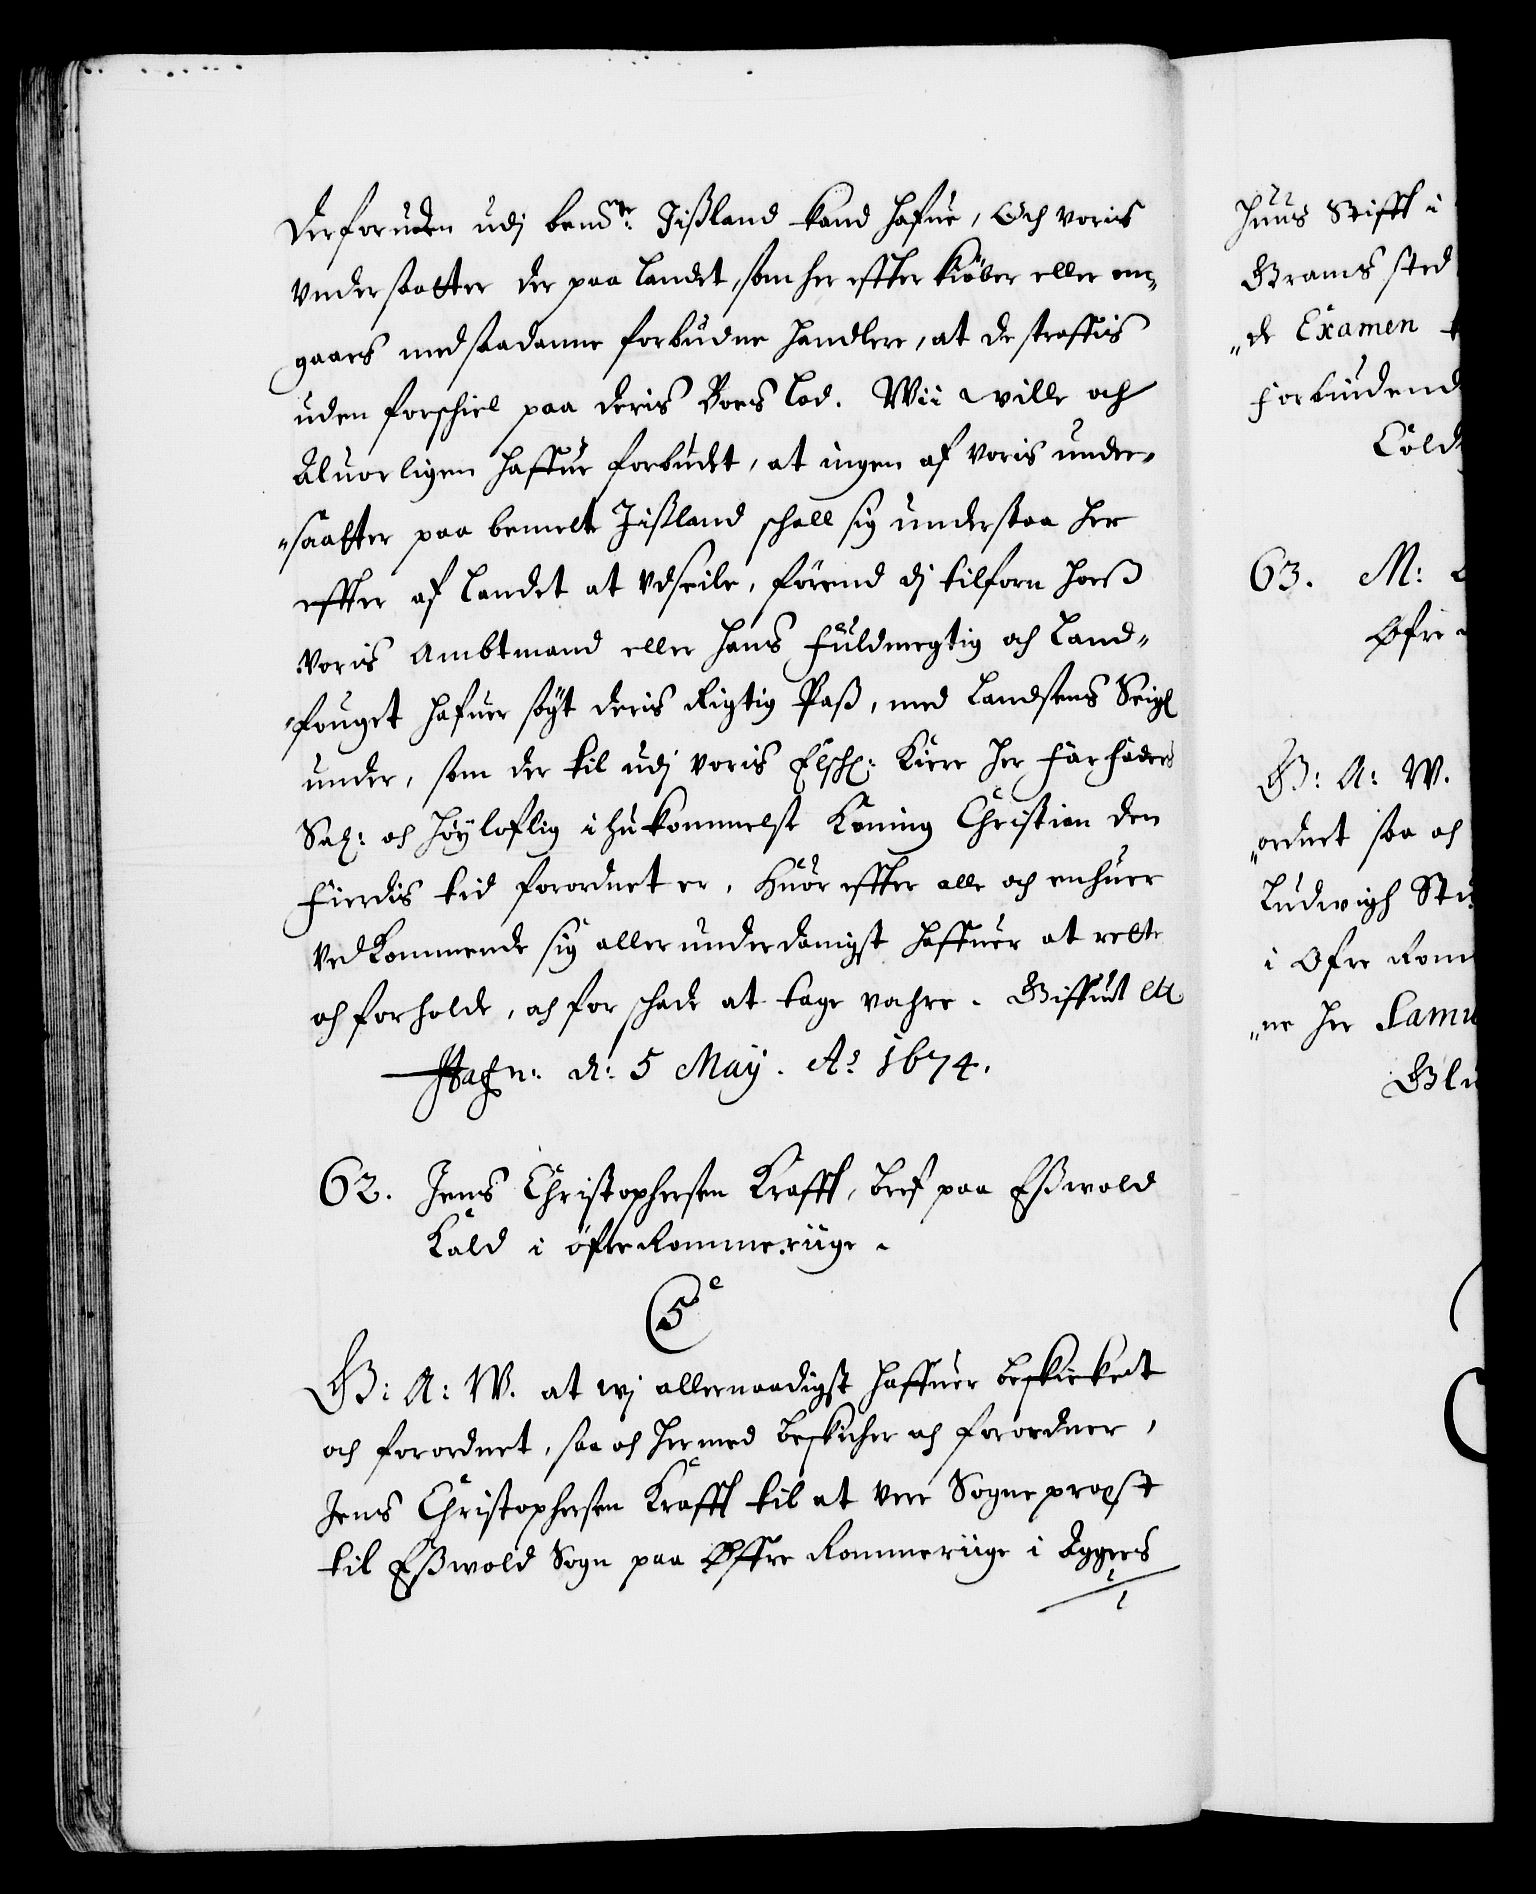 derforuden udj bem:te Jißland kand hafue, Och voris
vndersaatter der paa Landet, som her effter kiöber eller om-
gaaes med saadanne forbudne handlere, at de straffis
uden forschiel paa deris Boes Lod. Wii wille och
Aluorligen haffue forbudet, at ingen af voris under-
saatter paa bemelte Jißland schall sig understaa her
effter af Landet at vdseile, förend dj tilforn hoß
voris Ambtmand eller hans Fuldmegtig och Land-
fouget hafuer sögt deris Rigtig Paß, med Landsens Seigl
under, som der til udj voris Elsch: Kiere Her Farfaders
Sal: och Höyloflig ihukommelse Koning Christian den
Fierdis tid forordnet er, Huor effter alle och enhuer
vedkommende sig allerunderdanigst haffuer at rette
och forholde, och for schade at tage vahre. Giffuet etc
Hafn: d: 5 May. Ao 1674.
62. Jens Christophersen Krafft, bref paa Eßwold
Kald i öfre Rommerüge.
C5e
G: A: W. at wj allernaadigst haffuer beskicket
och forordnet, saa och hermed beskicher och forordner,
Jens Christophersen Krafft til at vere Sogneprest
til Eßwold Sogn paa Offre Rommerüge i Aggers
huus Stifft i
Grams sted
de Examen
forbindend
Cold
63. M:
Ofre
G: A: W.
ordnet saa och
Ludwigh
i Ofre Rom
ne Her Samu